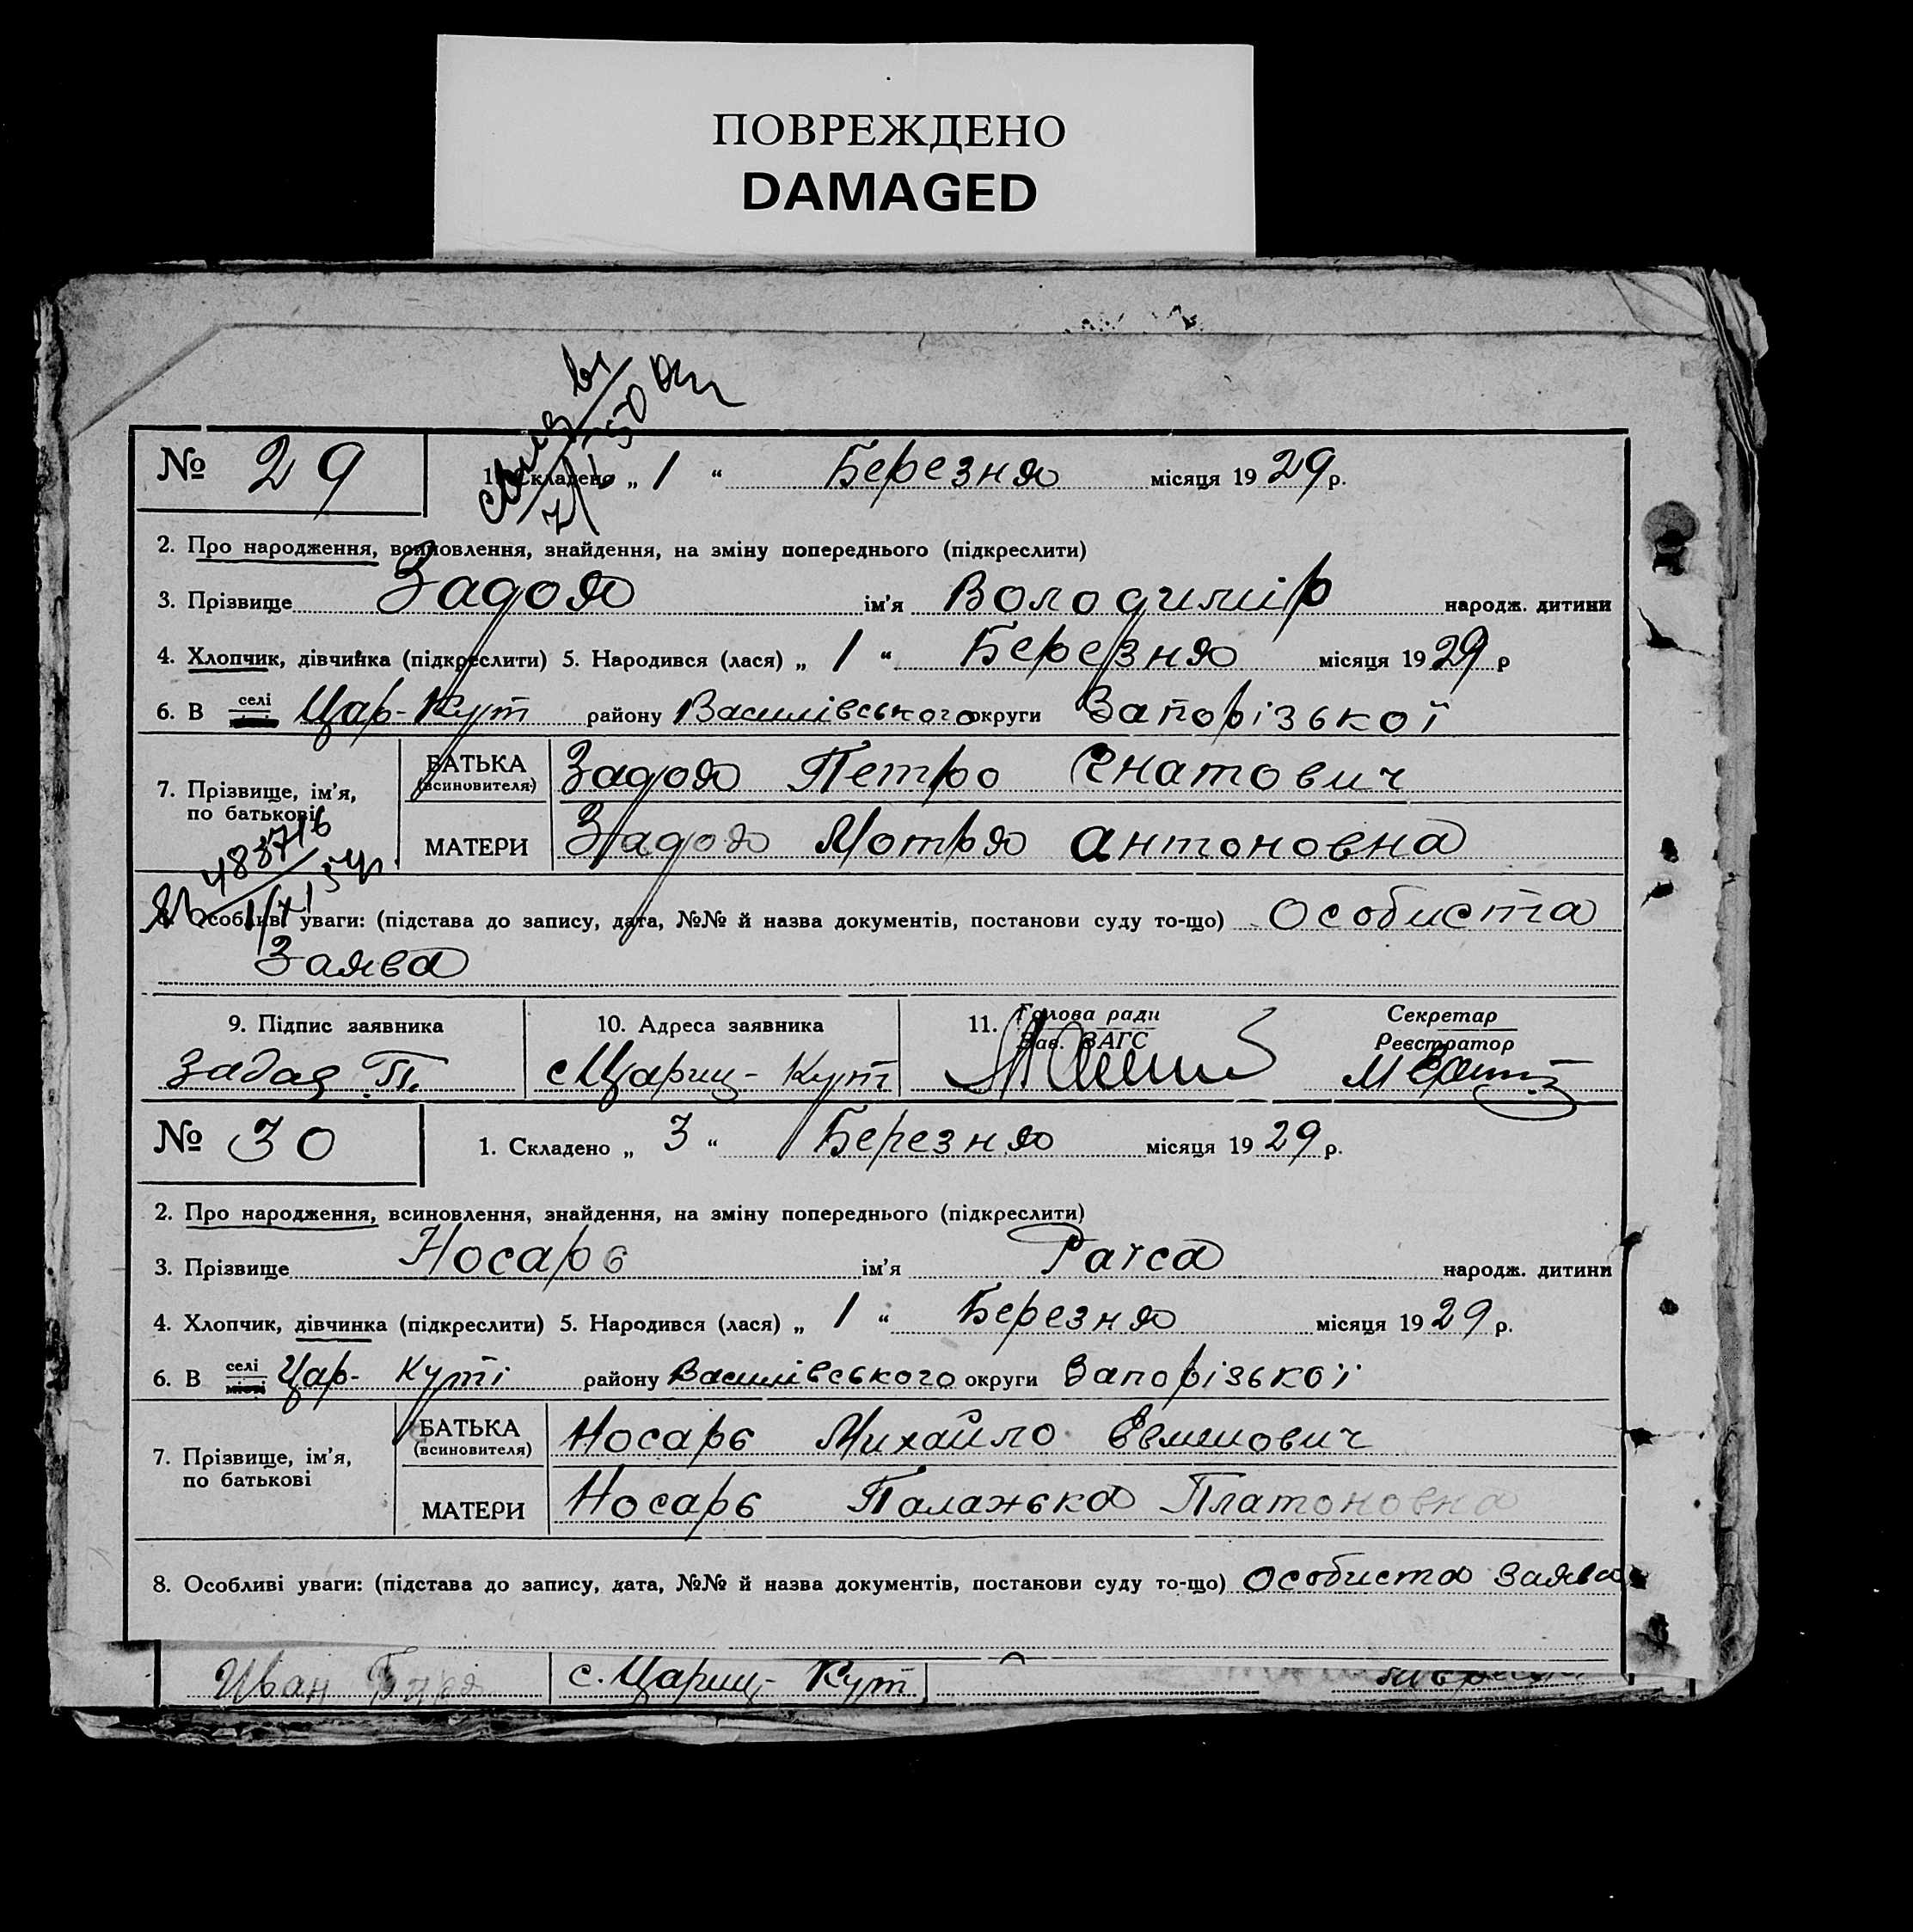 ПОВРЕЖДЕНО
DAMAGED
№ 29
1. Складено „ 1 “ Березня місяця 1929 р.
2. Про народження, всиновлення, знайдення, на зміну попереднього (підкреслити)
3. Прізвище Задоя ім’я Володимір народж. дитини
4. Хлопчик, дівчинка (підкреслити) 5. Народився (лася) „ 1 “ Березня місяця 1929 р
6. В селі Цар-Кут району Василівського округи Запорізької
7. Прізвище, ім’я, по батькові
БАТЬКА (всиновителя) Задоя Петро Гнатович
МАТЕРИ Задоя Мотря Антоновна
8. Особливі уваги: (підстава до запису, дата, №№ й назва документів, постанови суду то-що) Особиста
Заява
9. Підпис заявника 10. Адреса заявника 11. Голова ради Зав. ЗАГС Секретар Реєстратор
Задоя П. с Цариц-Кут
№ 30
1. Складено „ 3 “ Березня місяця 1929 р.
2. Про народження, всиновлення, знайдення, на зміну попереднього (підкреслити)
3. Прізвище Носарь ім’я Раїса народж. дитини
4. Хлопчик, дівчинка (підкреслити) 5. Народився (лася) „ 1 “ Березня місяця 1929 р.
6. В селі місті Цар-Куті району Василівського округи Запорізької
7. Прізвище, ім’я, по батькові
БАТЬКА (всиновителя) Носарь Михайло
МАТЕРИ Носарь Палажька Платоновна
8. Особливі уваги: (підстава до запису, дата, №№ й назва документів, постанови суду то-що) Особиста Заява
Иван с. Цариц-Кут